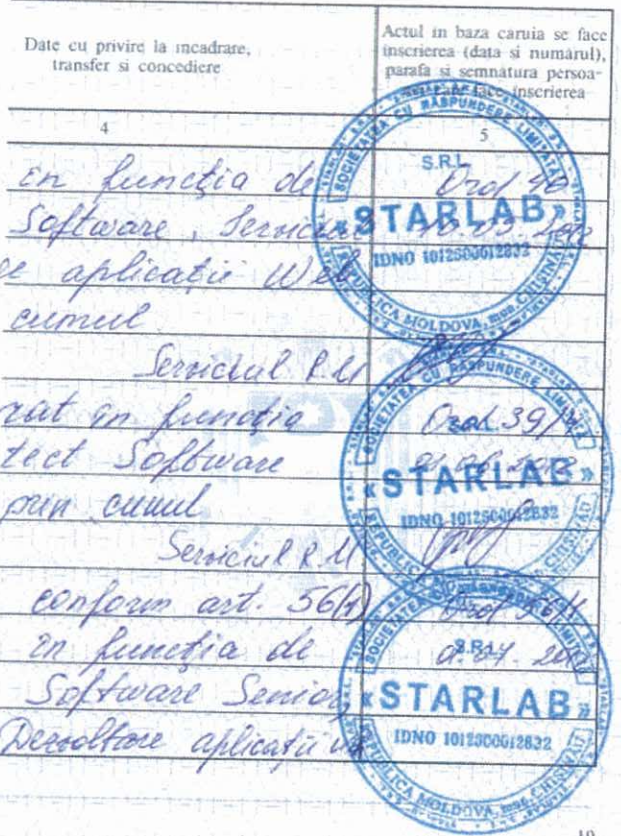 Date cu privire la incadrare,
transfer si concediere
Actul in baza caruia se face
inscrierea (data si numărul),
parafa si semnătura persoa-
care face inscrierea
4
5
în funcția de
Ord 40
Software, Serviciul
aplicații Web
cumul
Serviciul R.U
în funcția
Ord 39/
tect Software
prin cumul
Serviciul R.U
conform art. 56(1)
Ord
în funcția de
Software Senior,
Dezvoltare aplicații
SOCIETATEA CU RĂSPUNDERE LIMITATĂ
S.R.L.
«STARLAB»
IDNO 1012600012832
REPUBLICA MOLDOVA, mun. CHIȘINĂU
SOCIETATEA CU RĂSPUNDERE LIMITATĂ
«STARLAB»
IDNO 1012600012832
S.R.L.
«STARLAB»
IDNO 1012600012832
REPUBLICA MOLDOVA, mun. CHIȘINĂU
19